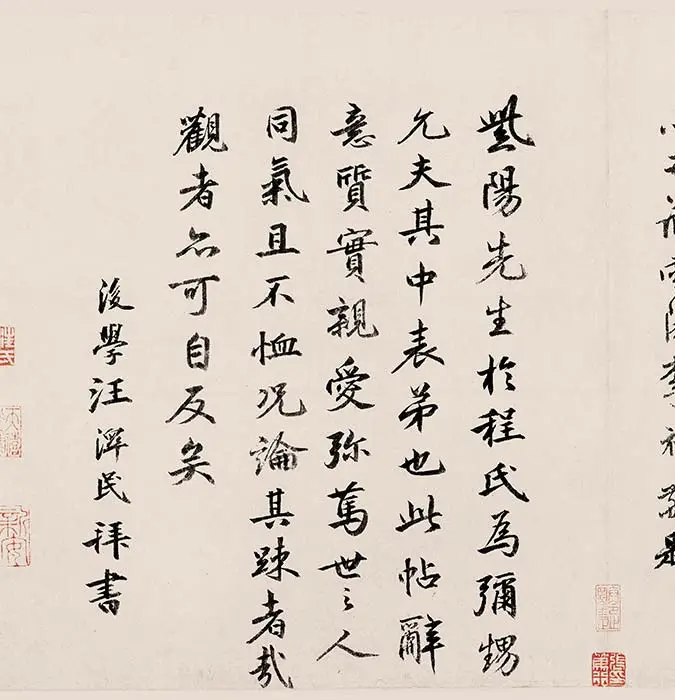 紫陽先生於程氏為彌甥
允夫其中表弟也此帖辭
意質實親愛弥篤世之人
同氣且不恤况論其踈者哉
觀者亦可自反矣
後學汪澤民拜書